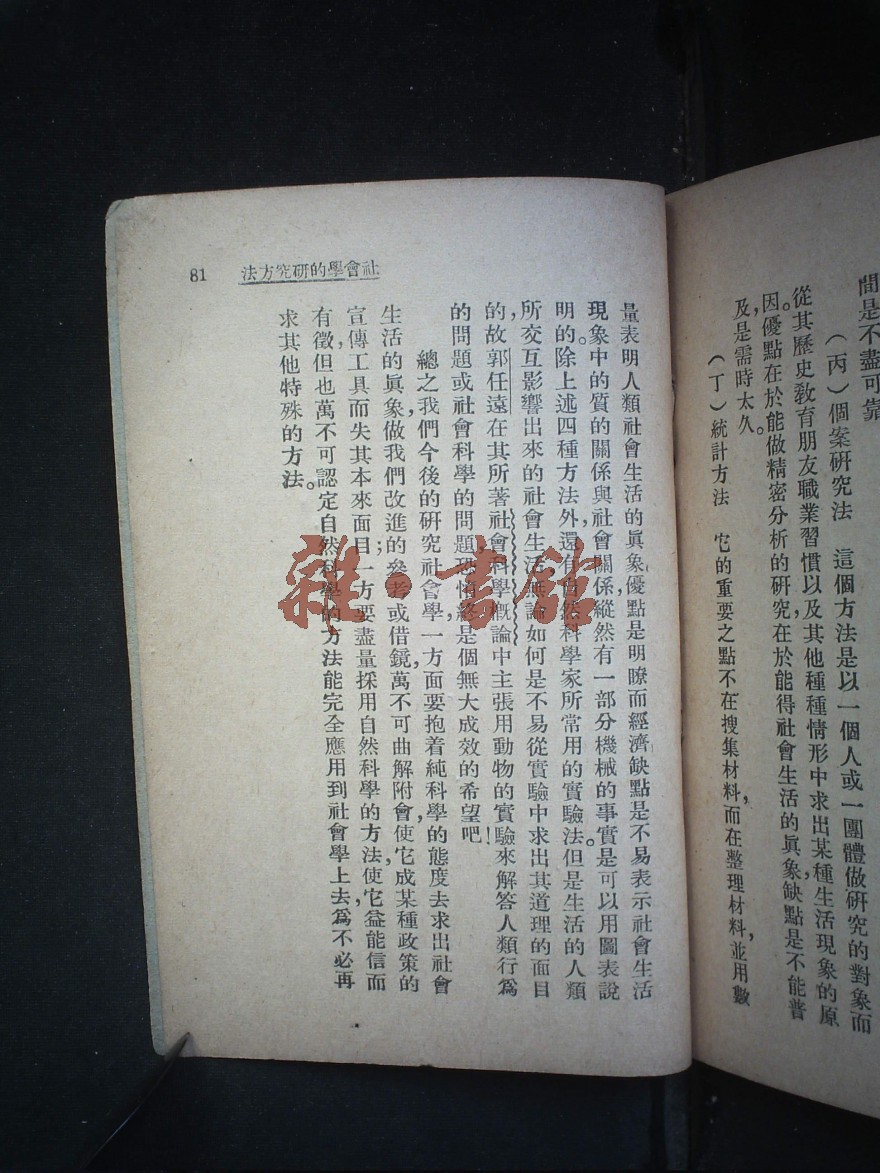 間是不盡可靠
（丙）個案研究法　這個方法是以一個人或一團體做研究的對象而
從其歷史教育朋友職業習慣以及其他種種情形中，求出某種生活現象的原
因。優點在於能做精密分析的研究在於能得社會生活的眞象缺點是不能普
及，是需時太久。
（丁）統計方法　它的重要之點不在搜集材料，而在整理材料，並用數
81
社會學的研究方法
量表明人類社會生活的眞象，優點是明瞭而經濟缺點是不易表示社會生活
現象中的質的關係與社會關係縱然有一部分機械的事實是可以用圖表說
明的。除上述四種方法外還有自然科學家所常用的實驗法。但是生活的人類
所交互影響出來的社會生活無論如何是不易從實驗中求出其道理的面目
的，故郭任遠在其所著社會科學概論中主張用動物的實驗來解答人類行爲
的問題或社會科學的問題，恐怕終是個無大成效的希望吧！
總之，我們今後的研究社會學一方面要抱着純科學的態度去求出社會
生活的眞象做我們改進的參考或借鏡，萬不可曲解附會，使它成某種政策的
宣傳工具而失其本來面目；一方要盡量採用自然科學的方法，使它益能信而
有徵，但也萬不可認定自然科學的方法能完全應用到社會學上去，爲不必再
求其他特殊的方法。
雜·書館